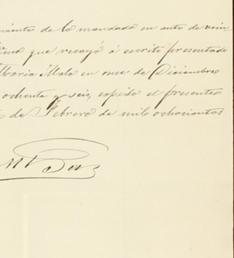 miento de lo mandado en auto de vein
que recayó á escrito presentado
Maria Mata en once de Diciembre
ochenta y seis, expido el presente
de Febrero de mil ochocientos